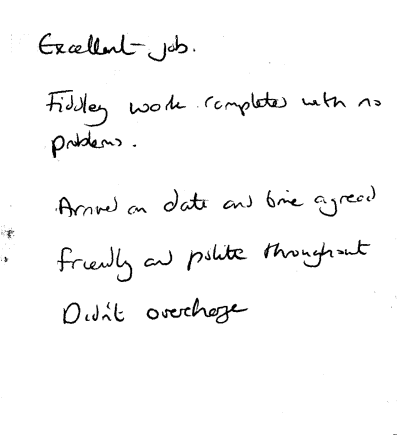 Excellent job.
Fiddley work completed with no
problems.
Arrived on date and time agreed
friendly and polite throughout
Didn't overcharge